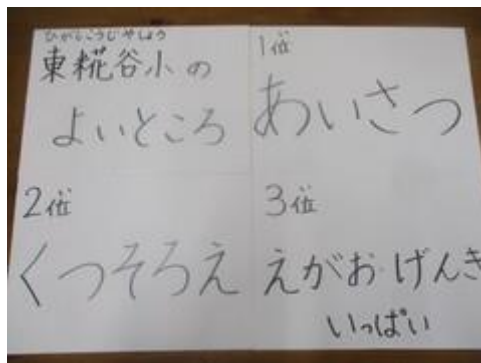 ひがしこうじやしょう
東糀谷小の
よいところ
1位
あいさつ
2位
くつそろえ
3位
えがお げんき
いっぱい